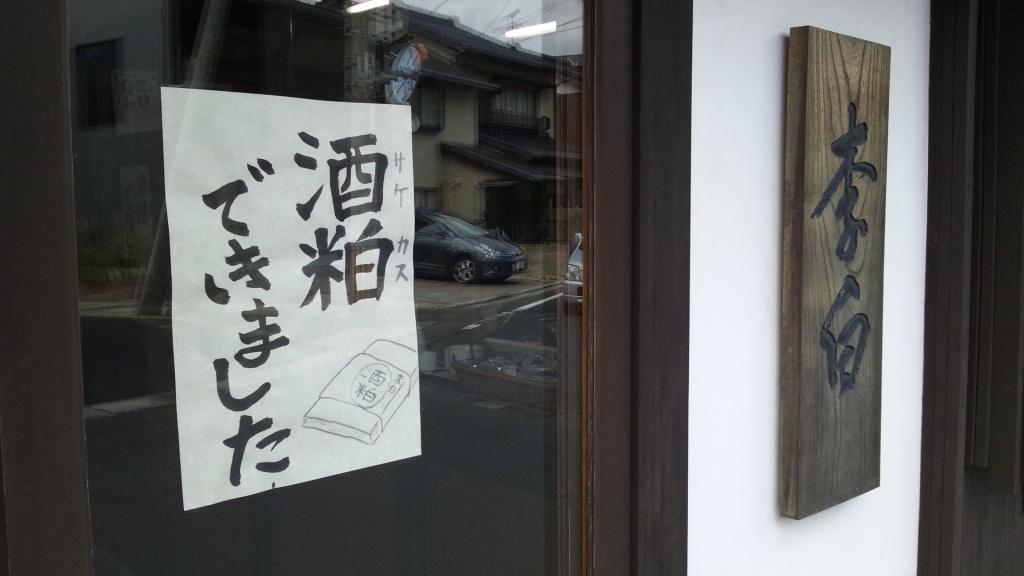 李白
酒粕
サケ カス
できました
李白
酒粕